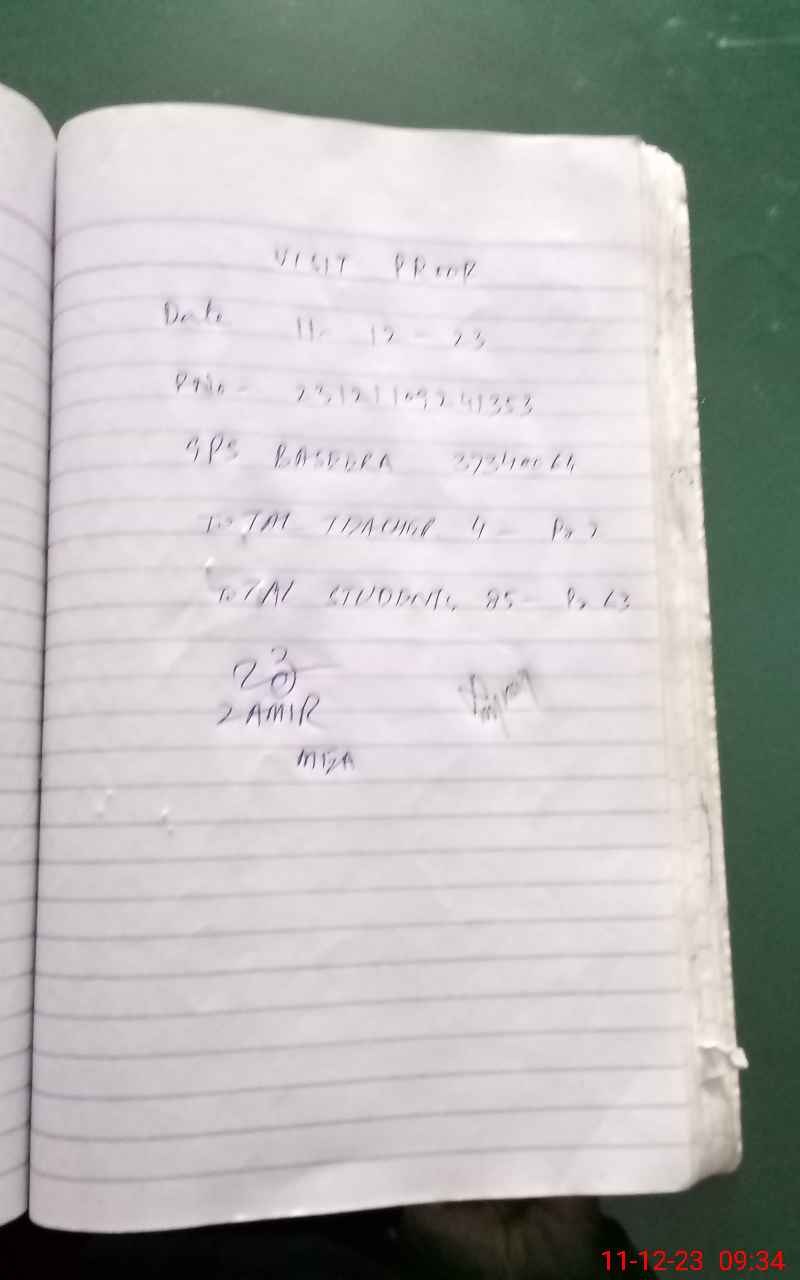 VISIT PROOF
Date 11-12-23
P.No- 23121109241353
GPS BASEERA
TOTAL TEACHER 4 - Pr 2
TOTAL STUDENTS 85 - Pr 63
ZAMIR
MEA
11-12-23 09:34